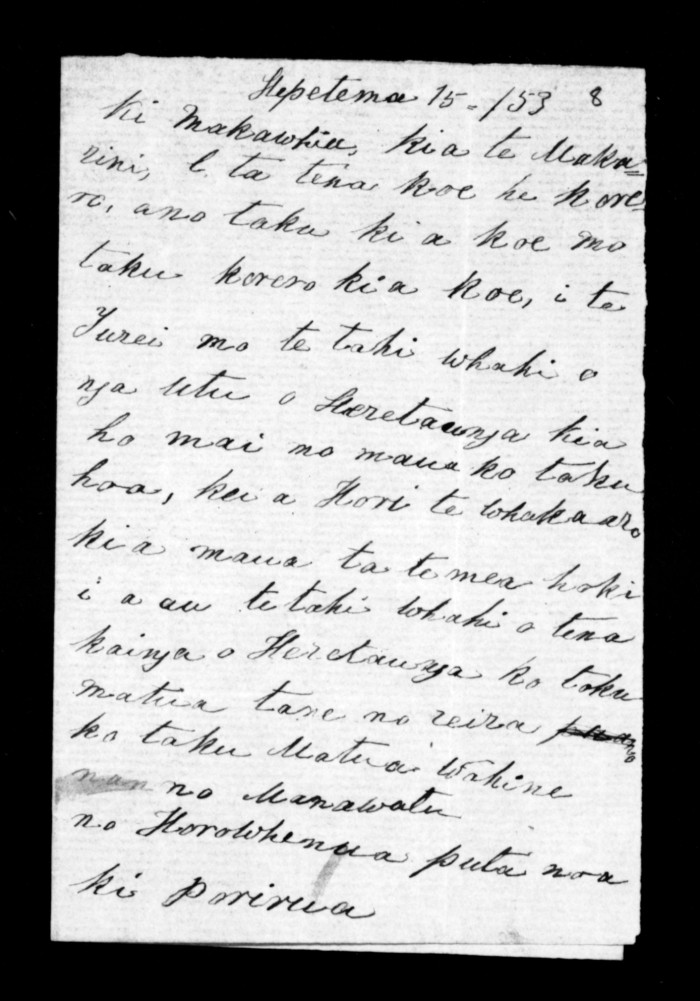 Hepetema 15 - /53 8
ki Makawhiu, kia te Maka=
rini, E ta tena koe he kore=
ro, ano taku ki a koe mo
taku korero kia koe, i te
Turei mo te tahi whahi o
nga utu o Heretaunga kia
ho mai no maua ko taku
hoa, kei a Hori te whakaaro
kia maua ta te mea hoki
i a au te tahi whahi o tena
kainga o Heretaunga ko toku
matua tane no reira
ko taku Matua Wahine
no Manawatu
no Horowhenua puta noa
ki Porirua